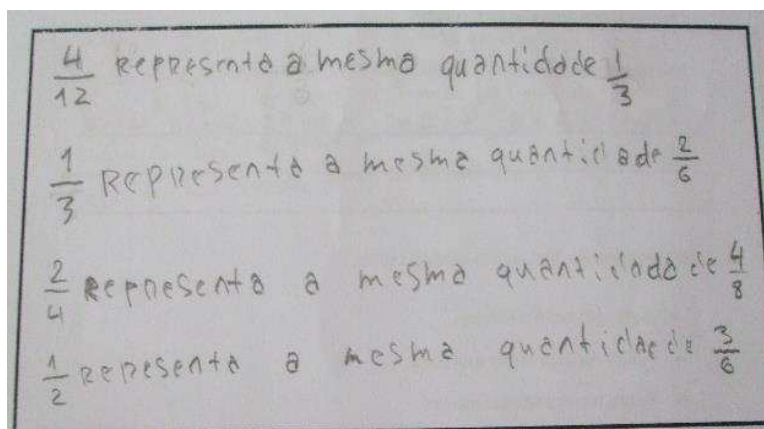 4/12 representa a mesma quantidade 1/3
1/3 Representa a mesma quantidade 2/6
2/4 representa a mesma quantidade de 4/8
1/2 representa a mesma quantidade 3/6